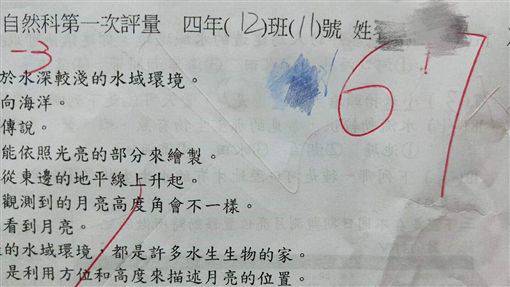 自然科第一次評量 四年(12)班(11)號 姓
-3
67
於水深較淺的水域環境。
向海洋。
傳說。
能依照光亮的部分來繪製。
從東邊的地平線上升起。
觀測到的月亮高度角會不一樣。
看到月亮。
的水域環境,都是許多水生生物的家。
是利用方位和高度來描述月亮的位置。